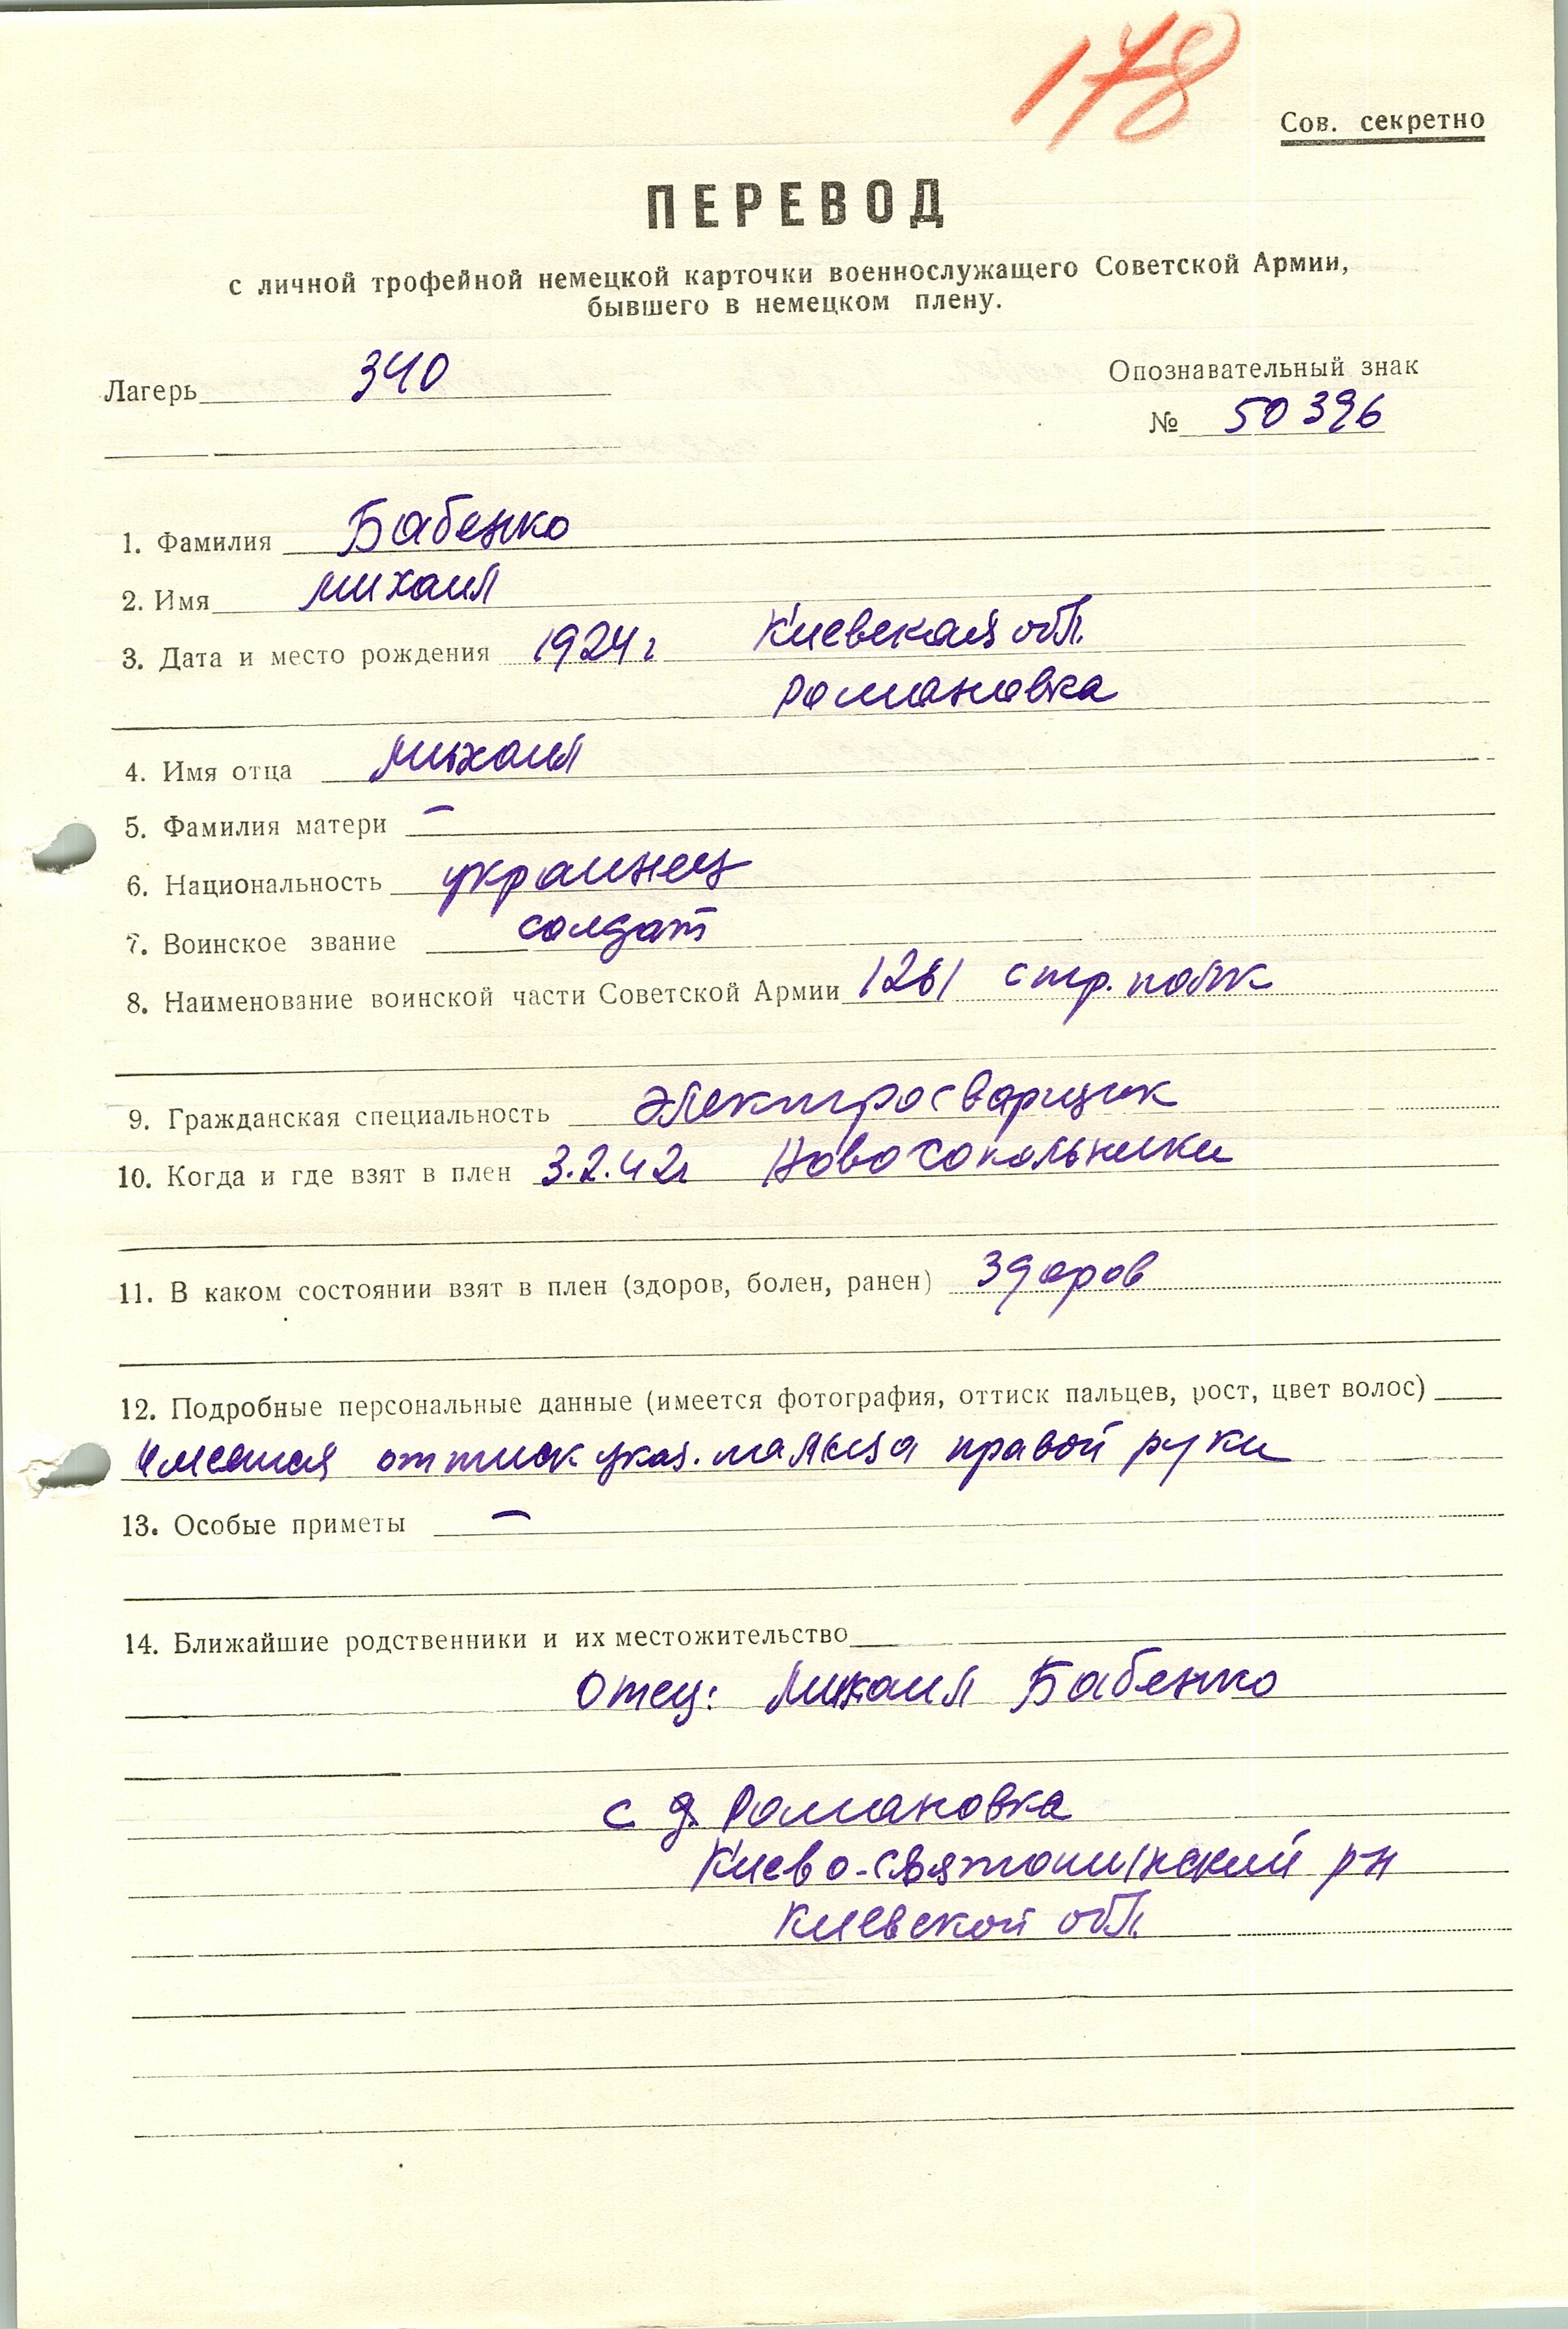 178
Сов. секретно
ПЕРЕВОД
с личной трофейной немецкой карточки военнослужащего Советской Армии,
бывшего в немецком плену.
Лагерь 340
Опознавательный знак
№ 50396
1. Фамилия Бабенко
2. Имя михаил
3. Дата и место рождения 1924 г Киевская обл.
Романовка
4. Имя отца михаил
5. Фамилия матери –
6. Национальность украинец
7. Воинское звание солдат
8. Наименование воинской части Советской Армии 1281 стр. полк
9. Гражданская специальность электросварщик
10. Когда и где взят в плен 3.2.42г Новосокольники
11. В каком состоянии взят в плен (здоров, болен, ранен) здоров
12. Подробные персональные данные (имеется фотография, оттиск пальцев, рост, цвет волос)
Имеется оттиск указ. пальца правой руки
13. Особые приметы –
14. Ближайшие родственники и их местожительство
Отец: Михаил Бабенко
с д. Романовка
Киево-Святошинский рн
Киевской обл.